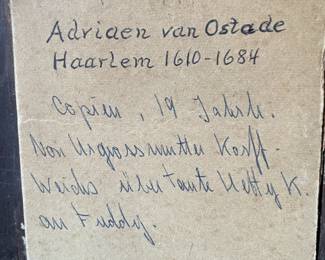 Adriaen van Ostade
Haarlem 1610-1684
Copien, 19 Jahrh.
Von Urgrossmutter Korff-
Weichs über Tante Hetty K.
an Fuddy.